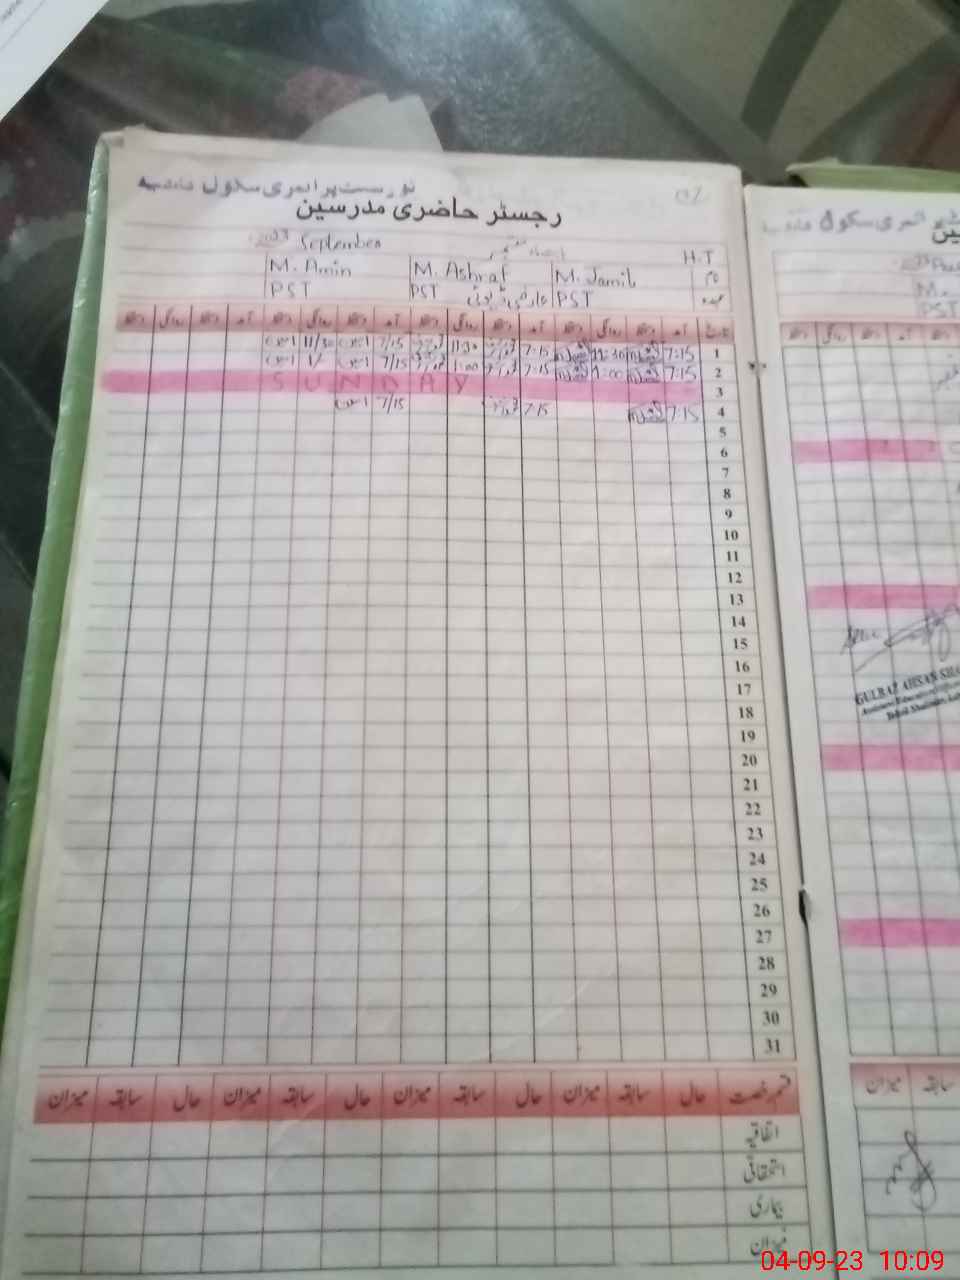 رجسٹر حاضری مدرسین
2023 September
H.T
نام M. Jamil M. Ashraf M. Amin
عہدہ PST عارضی ڈیوٹی PST PST
تاریخ آمد دستخط روانگی دستخط آمد دستخط روانگی دستخط آمد دستخط روانگی دستخط آمد دستخط روانگی دستخط
1 7:15 11:30 7:15 11:30 امین 7/15 امین 11/30
2 7:15 1:00 7:15 1:00 امین 7/15 امین 1/
3 SUNDAY
4 7:15 7:15 امین 7/15
5
6
7
8
9
10
11
12
13
14
15
16
17
18
19
20
21
22
23
24
25
26
27
28
29
30
31
قسم رخصت حال سابقہ میزان حال سابقہ میزان حال سابقہ میزان حال سابقہ میزان
اتفاقیہ
استحقاقی
بیماری
میزان
PST
GULBAZ AHSAN
سابقہ میزان
04-09-23 10:09